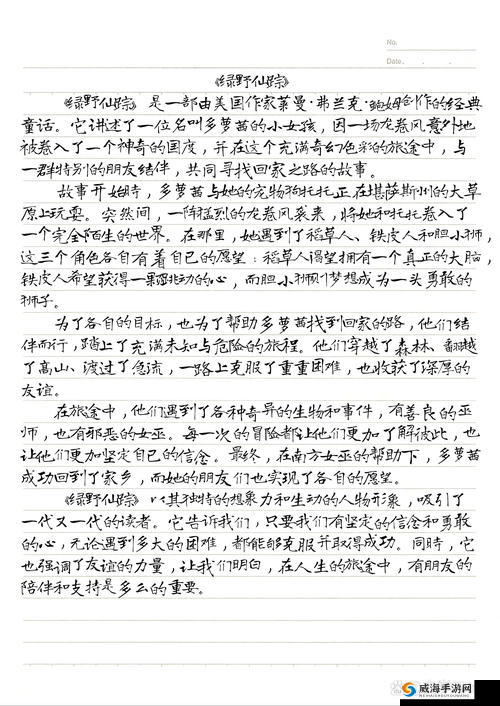 No.
Date
《绿野仙踪》
《绿野仙踪》是一部由美国作家莱曼·弗兰克·鲍姆创作的经典
童话。它讲述了一位名叫多萝茜的小女孩，因一场龙卷风意外地
被卷入了一个神奇的国度，并在这个充满奇幻色彩的旅途中，与
一群特别的朋友结伴，共同寻找回家之路的故事。
故事开始时，多萝茜与她的宠物狗托托正在堪萨斯州的大草
原上玩耍。突然间，一阵猛烈的龙卷风袭来，将她和托托卷入了
一个完全陌生的世界。在那里，她遇到了稻草人、铁皮人和胆小狮，
这三个角色各自有着自己的愿望：稻草人渴望拥有一个真正的大脑，
铁皮人希望获得一颗跳动的心，而胆小狮则梦想成为一头勇敢的
狮子。
为了各自的目标，也为了帮助多萝茜找到回家的路，他们结
伴而行，踏上了充满未知与危险的旅程。他们穿越了森林、翻越
了高山、渡过了急流，一路上克服了重重困难，也收获了深厚的
友谊。
在旅途中，他们遇到了各种奇异的生物和事件，有善良的巫
师，也有邪恶的女巫。每一次的冒险都让他们更加了解彼此，也
让他们更加坚定自己的信念。最终，在南方女巫的帮助下，多萝茜
成功回到了家乡，而她的朋友们也实现了各自的愿望。
《绿野仙踪》以其独特的想象力和生动的人物形象，吸引了
一代又一代的读者。它告诉我们，只要我们有坚定的信念和勇敢
的心，无论遇到多大的困难，都能够克服并取得成功。同时，它
也强调了友谊的力量，让我们明白，在人生的旅途中，有朋友的
陪伴和支持是多么的重要。
威海手游网